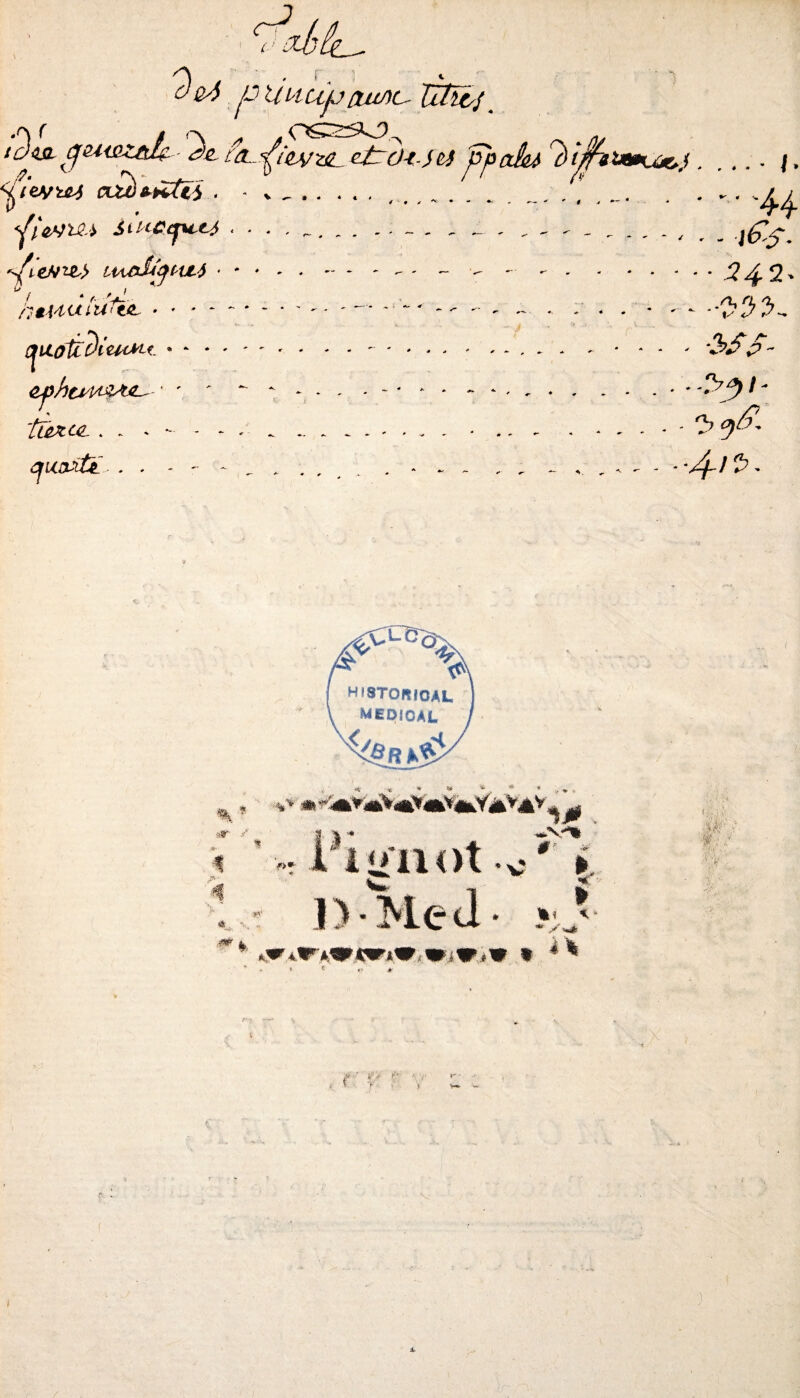 Table
Des principaux titres.
idée generale de la fievre et de ses ppales differences. . . . . 1.
fievres ardentes . . . . . 44
fievres sinoques . . . . . 165.
fievres malignes . . . . . 242.
hemitritée . . . . . 333.
quotidienne . . . . . 355-
ephemere . . . . . 391-
tierce . . . . . 398.
quarte . . . . . 413.
WELLCOME
HISTORICAL
MEDICAL
LIBRARY
Pignot
D·Med·